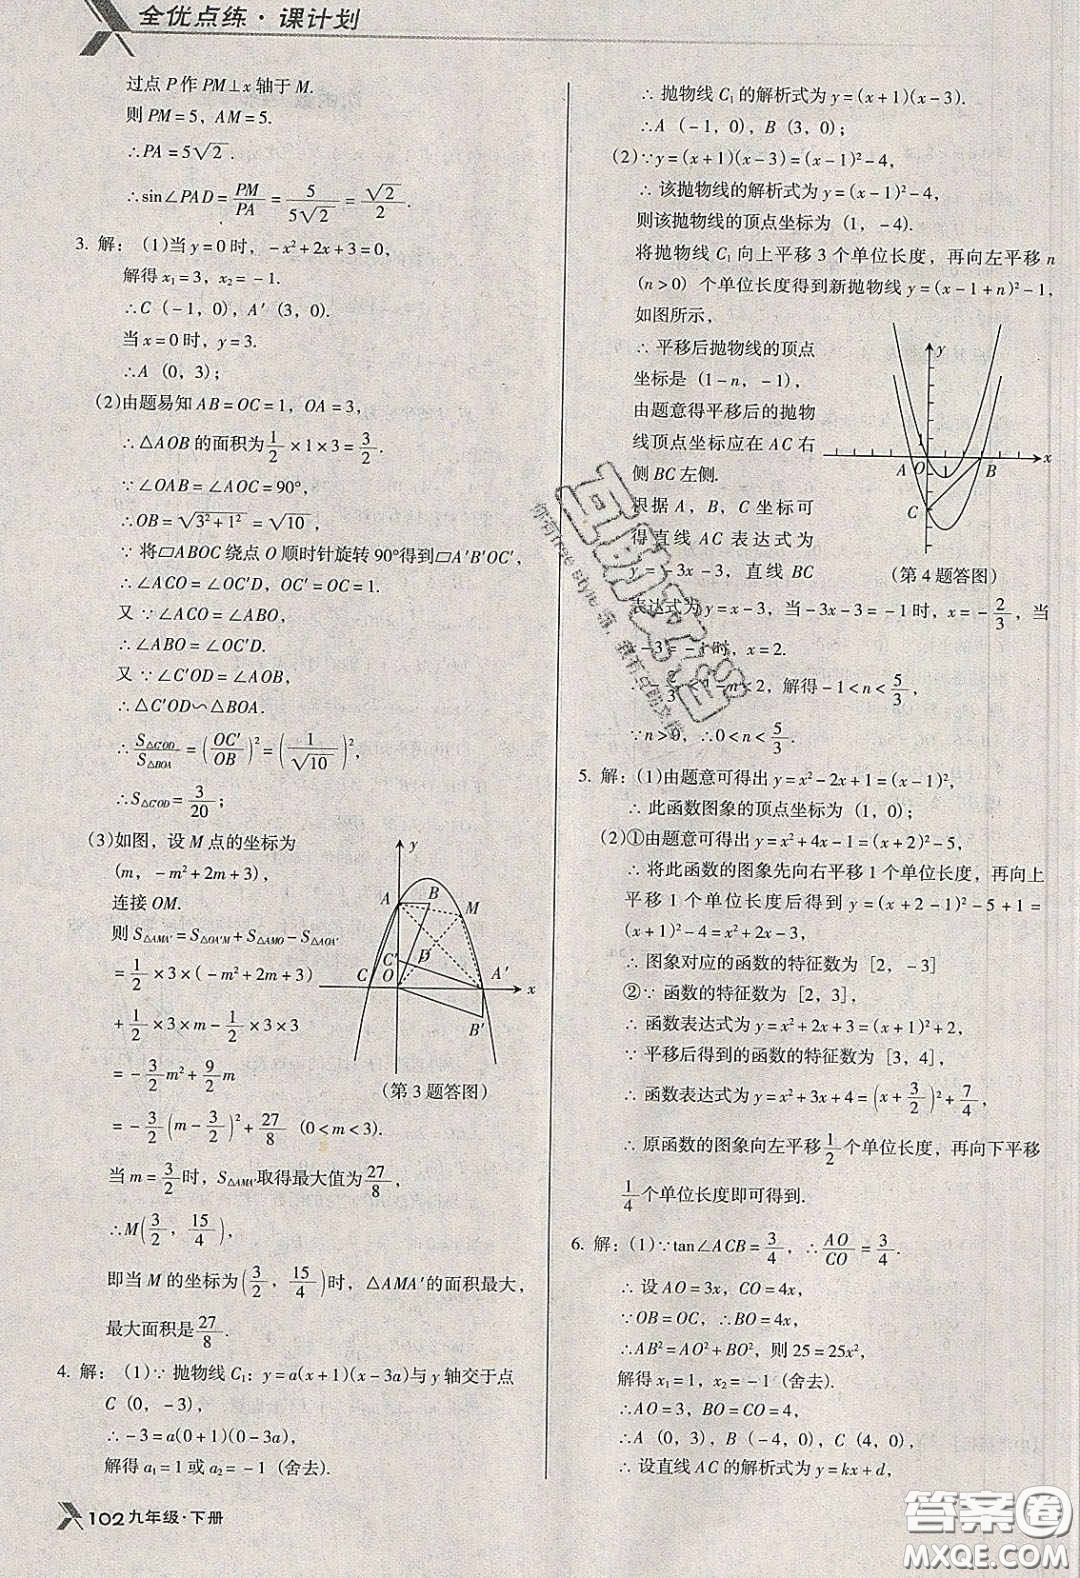 全优点练·课计划
过点P作PM⊥x轴于M.
则PM=5，AM=5.
∴PA=5√2.
∴sin∠PAD=PM/PA=5/(5√2)=√2/2.
3. 解：(1)当y=0时，-x²+2x+3=0，
解得x₁=3，x₂=-1.
∴C(-1，0)，A′(3，0).
当x=0时，y=3.
∴A(0，3)；
(2)由题易知AB=OC=1，OA=3，
∴△AOB的面积为1/2×1×3=3/2.
∵∠OAB=∠AOC=90°，
∴OB=√(3²+1²)=√10，
∵将▱ABOC绕点O顺时针旋转90°得到▱A′B′OC′，
∴∠ACO=∠OC′D，OC′=OC=1.
又∵∠ACO=∠ABO，
∴∠ABO=∠OC′D.
又∵∠C′OD=∠AOB，
∴△C′OD∽△BOA.
∴S△C′OD/S△BOA=(OC′/OB)²=(1/√10)²，
∴S△C′OD=3/20；
(3)如图，设M点的坐标为
(m，-m²+2m+3)，
连接OM.
则S△AMA′=S△OA′M+S△AMO-S△AOA′
=1/2×3×(-m²+2m+3)
+1/2×3×m-1/2×3×3
=-3/2m²+9/2m
=-3/2(m-3/2)²+27/8(0<m<3).
y
A
B
M
C′
D
C
O
A′
x
B′
(第3题答图)
当m=3/2时，S△AMA′取得最大值为27/8，
∴M(3/2，15/4)，
即当M的坐标为(3/2，15/4)时，△AMA′的面积最大，
最大面积是27/8.
4. 解：(1)∵抛物线C₁：y=a(x+1)(x-3a)与y轴交于点
C(0，-3)，
∴-3=a(0+1)(0-3a)，
解得a₁=1或a₂=-1(舍去).
102九年级·下册
∴抛物线C₁的解析式为y=(x+1)(x-3).
∴A(-1，0)，B(3，0)；
(2)∵y=(x+1)(x-3)=(x-1)²-4，
∴该抛物线的解析式为y=(x-1)²-4，
则该抛物线的顶点坐标为(1，-4).
将抛物线C₁向上平移3个单位长度，再向左平移n
(n>0)个单位长度得到新抛物线y=(x-1+n)²-1，
如图所示，
∴平移后抛物线的顶点
坐标是(1-n，-1)，
由题意得平移后的抛物
线顶点坐标应在AC右
侧BC左侧.
根据A，B，C坐标可
得直线AC表达式为
y=-3x-3，直线BC
y
1
A
O
B
x
C
(第4题答图)
表达式为y=x-3，当-3x-3=-1时，x=-2/3，当
x-3=-1时，x=2.
∴-2/3<1-n<2，解得-1<n<5/3，
∵n>0，∴0<n<5/3.
5. 解：(1)由题意可得出y=x²-2x+1=(x-1)²，
∴此函数图象的顶点坐标为(1，0)；
(2)①由题意可得出y=x²+4x-1=(x+2)²-5，
∴将此函数的图象先向右平移1个单位长度，再向上
平移1个单位长度后得到y=(x+2-1)²-5+1=
(x+1)²-4=x²+2x-3，
∴图象对应的函数的特征数为[2，-3]
②∵函数的特征数为[2，3]，
∴函数表达式为y=x²+2x+3=(x+1)²+2，
∵平移后得到的函数的特征数为[3，4]，
∴函数表达式为y=x²+3x+4=(x+3/2)²+7/4，
∴原函数的图象向左平移1/2个单位长度，再向下平移
1/4个单位长度即可得到.
6. 解：(1)∵tan∠ACB=3/4，∴AO/CO=3/4.
∴设AO=3x，CO=4x，
∵OB=OC，∴BO=4x.
∴AB²=AO²+BO²，则25=25x²，
解得x₁=1，x₂=-1(舍去).
∴AO=3，BO=CO=4，
∴A(0，3)，B(-4，0)，C(4，0)，
∴设直线AC的解析式为y=kx+d，
答案圈
MXQE.COM